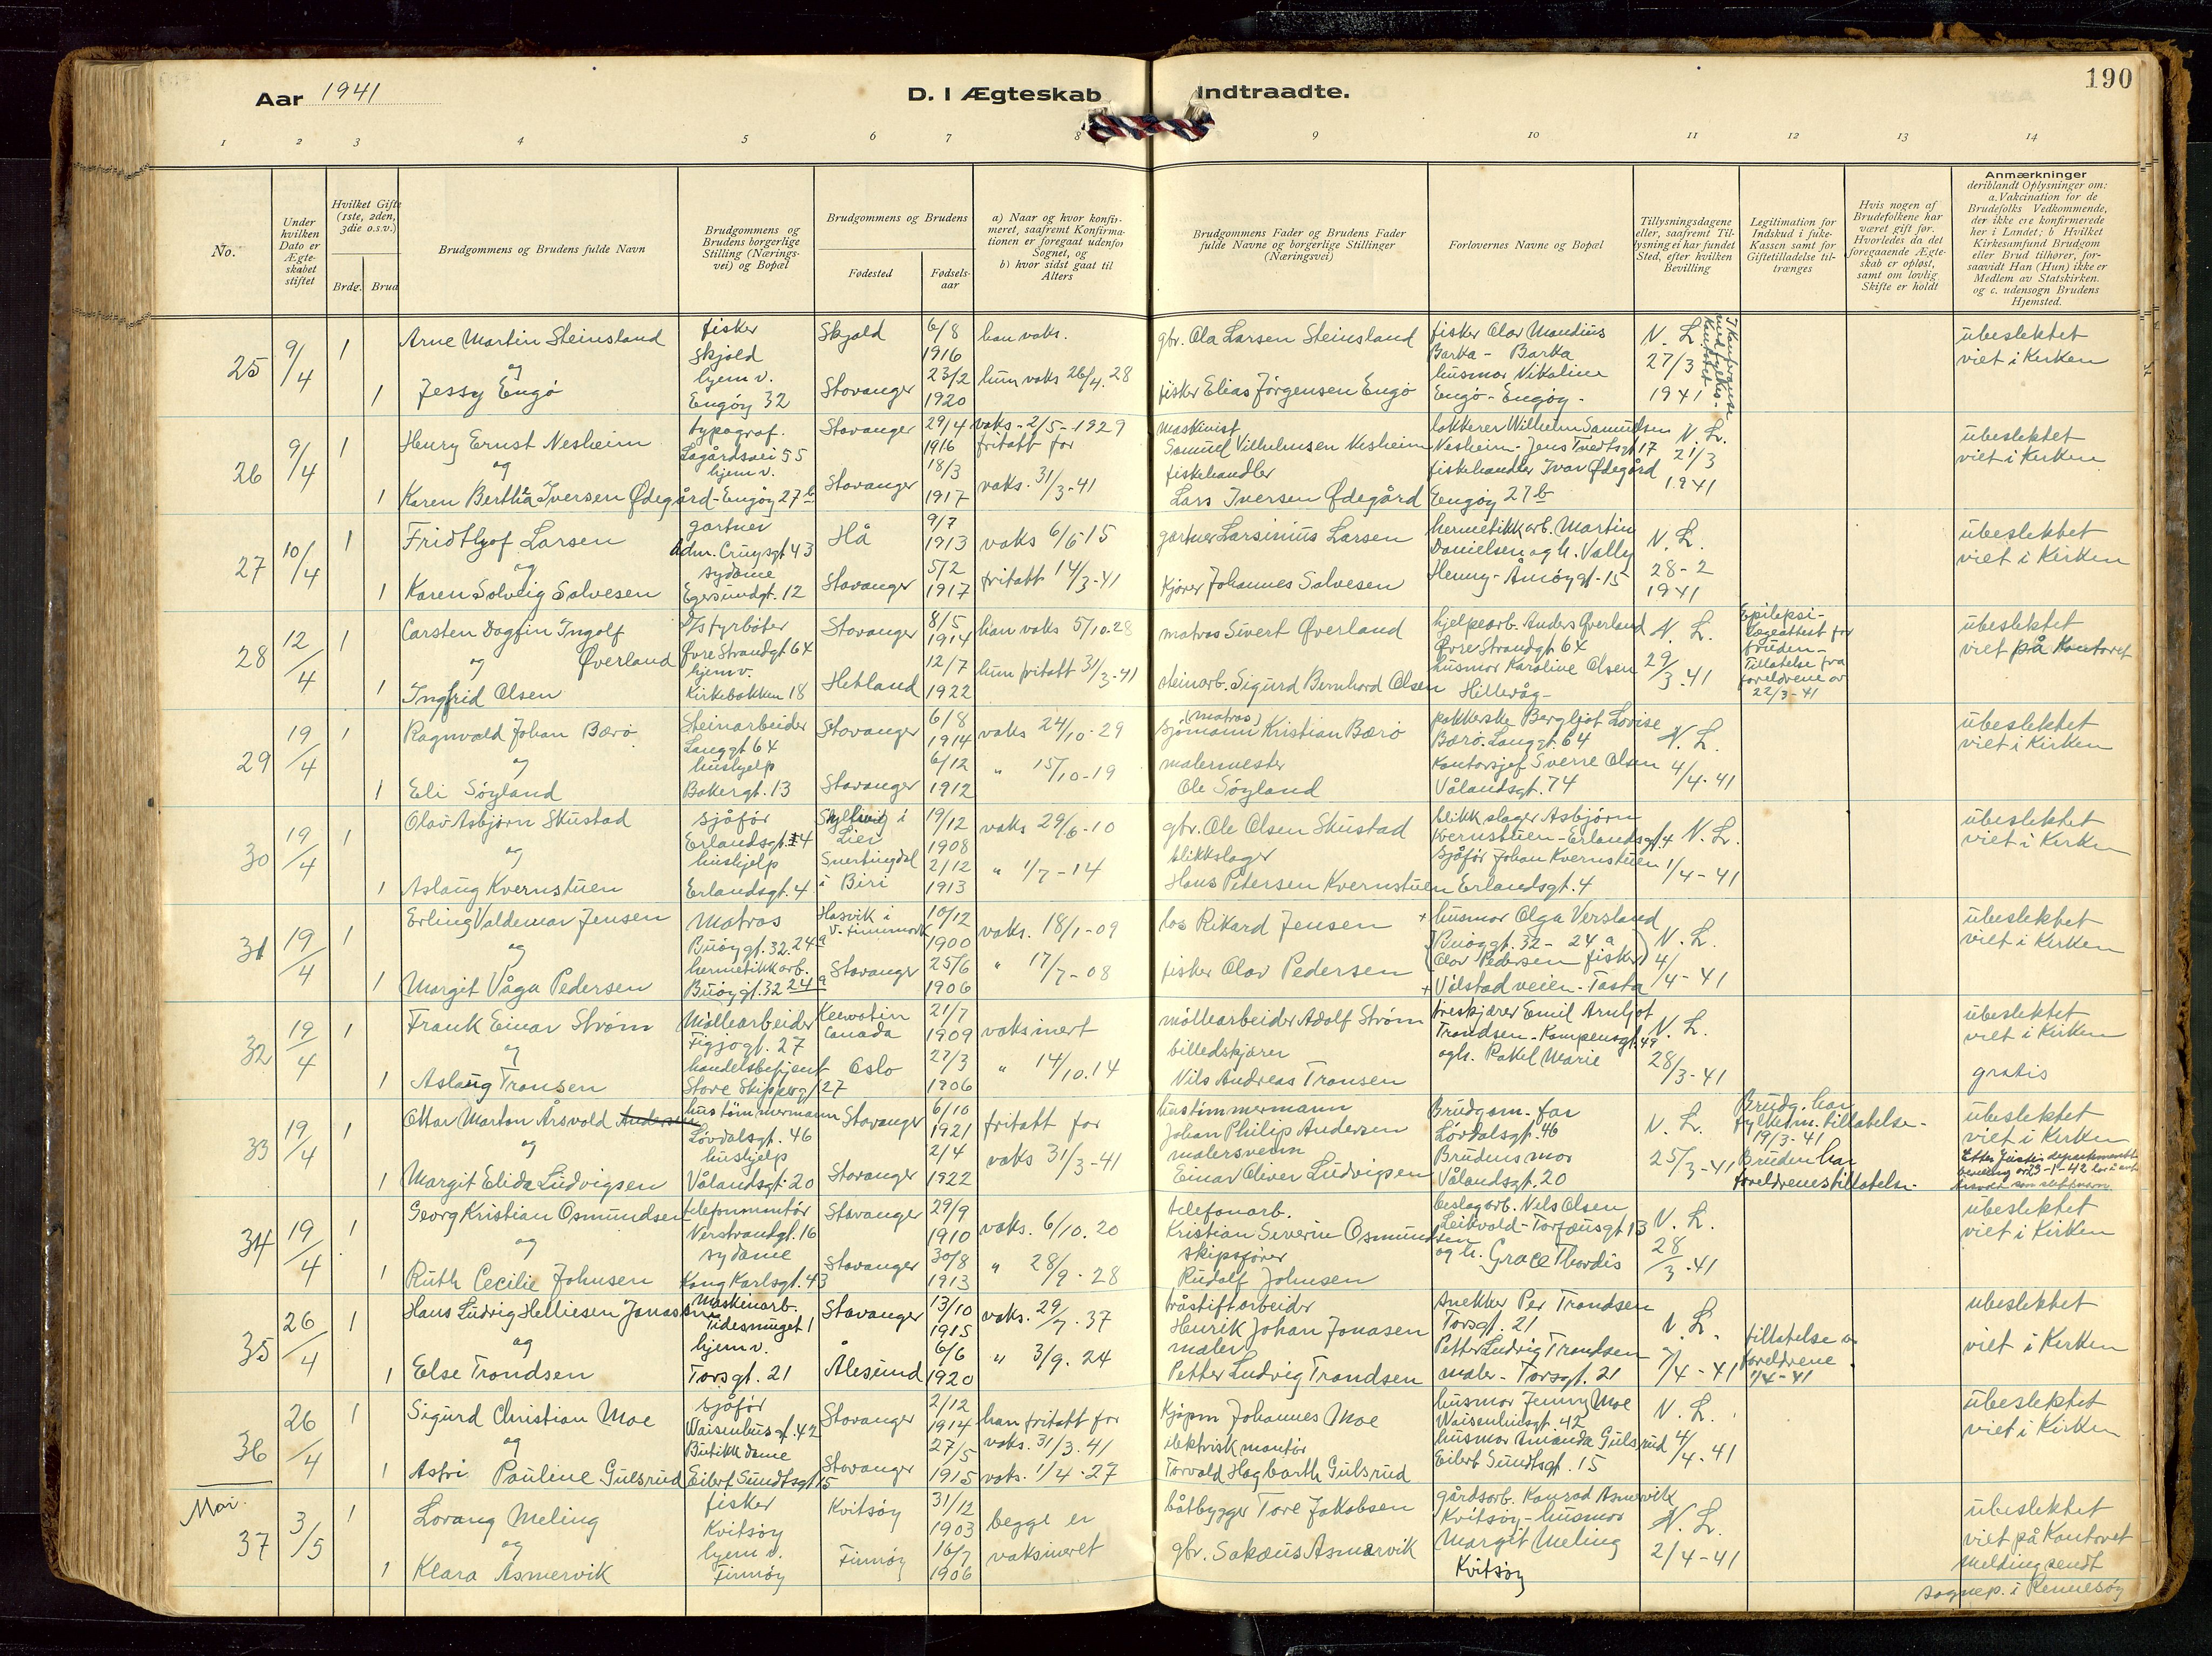 190
Aar 1941
D. I Ægteskab Indtraadte.
1 2 3 4 5 6 7 8 9 10 11 12 13 14
No.
Under hvilken Dato er Ægteskabet stiftet
Hvilket Gifte (1ste, 2den, 3die o.s.v.)
Brdg. Brud
Brudgommens og Brudens fulde Navn
Brudgommens og Brudens borgerlige Stilling (Næringsvei) og Bopæl
Brudgommens og Brudens
Fødested
Fødselsaar
a) Naar og hvor konfirmeret, saafremt Konfirmationen er foregaat udenfor Sognet, og
b) hvor sidst gaat til Alters
Brudgommens Fader og Brudens Fader fulde Navne og borgerlige Stillinger (Næringsvei)
Forlovernes Navne og Bopæl
Tillysningsdagene eller, saafremt Tillysning ei har fundet Sted, efter hvilken Bevilling
Legitimation for Indskud i Enke-Kassen samt for Giftetilladelse tiltrænges
Hvis nogen af Brudefolkene har været gift før. Hvorledes da det foregaaende Ægteskab er opløst, samt om lovlig Skifte er holdt
Anmærkninger
deriblandt Oplysninger om: a. Vakcination for de Brudefolks Vedkommende, der ikke ere konfirmerede her i Landet; b Hvilket Kirkesamfund Brudgom eller Brud tilhører, forsaavidt Han (Hun) ikke er Medlem av Statskirken. og c. udensogn Brudens Hjemsted.
25 9/4 1 Arne Martin Steinsland fisker Skjold Skjold 6/8 1916 han vaks. gbr. Ola Larsen Steinsland fisker Olav Mandius Barka - Barka N. L. 27/3 1941 ubeslektet viet i Kirken
og
1 Jessy Engø hjem v. Engøy 32 Stavanger 23/2 1920 hun vaks 26/4. 28 fisker Elias Jørgensen Engø husmor Nikoline Engø - Engøy -
26 9/4 1 Henry Ernst Nesheim typograf. Lagårdsvei 55 Stavanger 29/4 1916 vaks - 2/5 - 1929 maskinist Samuel Vilhelmsen Nesheim lakkerer Wilhelm Samuelsen Nesheim - Jens Tvedtsgt 17 N. L. 21/3 1941 ubeslektet viet i Kirken
og
1 Karen Bertha Iversen Ødegård hjem v. Engøy 27 b Stavanger 18/3 1917 fritatt for vaks. 31/3-41 fiskehandler Lars Iversen Ødegård fiskehandler Ivar Ødegård Engøy 27 b
27 10/4 1 Fridthjof Larsen gartner Adm. Cruysgt 43 Hå 9/7 1913 vaks 6/6 15 gartner Larsinius Larsen hermetikkarb. Martin Danielsen og h. Vally N. L. 28-2 1941 ubeslektet viet i Kirken
og
1 Karen Solveig Salvesen sydame Egersundgt. 12 Stavanger 5/2 1917 fritatt 14/3-41 Kjører Johannes Salvesen Henny - Åmøygt - 15
28 12/4 1 Carsten Dagfin Ingolf Øverland Øvre Strandgt 64 Stavanger 8/5 1914 han vaks 5/10.28 matros Sivert Øverland hjelpearb. Anders Øverland Øvre Strandgt 64 N. L. 29/3.41 Epilepsi- Lægeattest for bruden - Tillatelse fra foreldrene av 22/3-41 ubeslektet viet på Kontoret
og
1 Ingfrid Olsen hjem v. Kirkebakken 18 Hetland 12/7 1922 hun fritatt 31/3-41 steinarb. Sigurd Bernhard Olsen husmor Karoline Olsen Hillevåg -
29 19/4 1 Ragnvald Johan Bærø Steinarbeider Langgt 64 Stavanger 6/8 1914 vaks 24/10-29 (matros) sjømann Kristian Bærø pakkerske Bergljot Lovise Bærø. Langgt. 64 N. L. 4/4-41 ubeslektet viet i Kirken
og
1 Eli Søyland hushjelp Bakergt. 13 Stavanger 6/12 1912 " 15/10-19 malermester Ole Søyland Kontorsjef Sverre Olsen Vålandsgt. 74
30 19/4 1 Olav Asbjørn Skustad sjåfør Erlandsgt. 4 i Lier 19/12 1908 vaks 29/6-10 gbr. Ole Olsen Skustad blikkslager Asbjørn Kvernstuen - Erlandsgt. 4 N. L. 1/4-41 ubeslektet viet i Kirken
og
1 Aslaug Kvernstuen hushjelp Erlandsgt. 4 Snertingdal i Biri 2/12 1913 " 1/7-14 blikkslager Hans Petersen Kvernstuen sjåfør Johan Kvernstuen Erlandsgt. 4
31 19/4 1 Erling Valdemar Jensen Matros Buøygt. 32. 24 a Hasvik i V-Finnmark 10/12 1900 vaks. 18/1-09 los Rikard Jensen + husmor Olga Versland Buøygt. 32 - 24 a N. L. 4/4-41 ubeslektet viet i Kirken
og
1 Margit Våga Pedersen hermetikkarb. Buøygt. 32 24 a Stavanger 25/6 1906 " 17/7-08 fisker Olav Pedersen (Olav Pedersen fisker) + Vålstadveien - Tasta
32 19/4 1 Frank Einar Strøm Møllearbeider Figjogt. 27 Keewatin Canada 21/7 1909 vaksinert møllearbeider Adolf Strøm treskjærer Emil Arnljot Trondsen - Kampensgt. 49 N. L. 28/3-41 ubeslektet viet i Kirken
og
1 Aslaug Transen handelsbetjent Store Skipperg/27 Oslo 27/3 1906 " 14/10.14 billedskjærer Nils Andreas Transen og h. Rakel Marie gratis
33 19/4 1 Ottar Morton Årsvold Andersen hustømmermann Løvdalsgt. 46 Stavanger 6/10 1921 fritatt for hustømmermann Johan Philip Andersen Brudgom. far Løvdalsgt. 46 N. L. 25/3-41 Brudg. har fylkesm. tillatelse - 19/3-41 ubeslektet viet i Kirken
og
1 Margit Elida Ludvigsen hushjelp Vålandsgt. 20 Stavanger 2/4 1922 vaks 31/3-41 malersvenn Einar Oliver Ludvigsen Brudens mor Vålandsgt. 20 Bruden har foreldrenes tillatelse.
34 19/4 1 Georg Kristian Osmundsen telefonmontør Verkstrandgt. 16 Stavanger 29/9 1910 vaks. 6/10. 20 telefonarb. Kristian Severin Osmundsen beslagarb. Nils Olsen Leikvold - Torfæusgt 13 N. L. 28/3.41 ubeslektet viet i Kirken
og
1 Ruth Cecilie Johnsen sydame Kong Karlsgt. 43 Stavanger 30/8 1913 " 28/9. 28 skipsfører Rudolf Johnsen og h. Grace Thordis
35 26/4 1 Hans Ludvig Helliesen Jonassen Maskinarb. Tidesmuget 1 Stavanger 13/10 1915 vaks. 29/7. 37 tråstiftarbeider Henrik Johan Jonasen snekker Per Trondsen Torsgt. 21 N. L. 7/4-41 tillatelse av foreldrene 1/4-41 ubeslektet viet i Kirken
og
1 Else Trondsen hjem v. Torsgt. 21 Ålesund 6/6 1920 " 3/9. 24 maler Petter Ludvig Trondsen Petter Ludvig Trondsen maler - Torsgt. 21
36 26/4 1 Sigurd Christian Moe sjåfør Waisenhusgt. 42 Stavanger 2/12 1914 han fritatt for vaks. 31/3.41 Kjøpm Johannes Moe husmor Jenny Moe Waisenhusgt. 42 N. L. 4/4.41 ubeslektet viet i Kirken
og
1 Astri Pauline Gulsrud Butikkdame Eilert Sundtsgt 15 Stavanger 27/5 1915 vaks. 1/4. 27 elektrisk montør Torvald Hagbarth Gulsrud husmor Amanda Gulsrud Eilert Sundtsgt. 15
Mai.
37 3/5 1 Lorang Meling fisker Kvitsøy Kvitsøy 31/12 1903 begge er vaksineret båtbygger Tore Jakobsen gårdsarb. Konrad Asmervik Kvitsøy - husmor N. L. 2/4-41 ubeslektet viet på Kontoret
og
1 Klara Asmervik hjem v. Finnøy Finnøy 16/7 1906 gbr. Sakæus Asmarvik Margit Meling Kvitsøy Melding sendt sognep. i Rennesøy